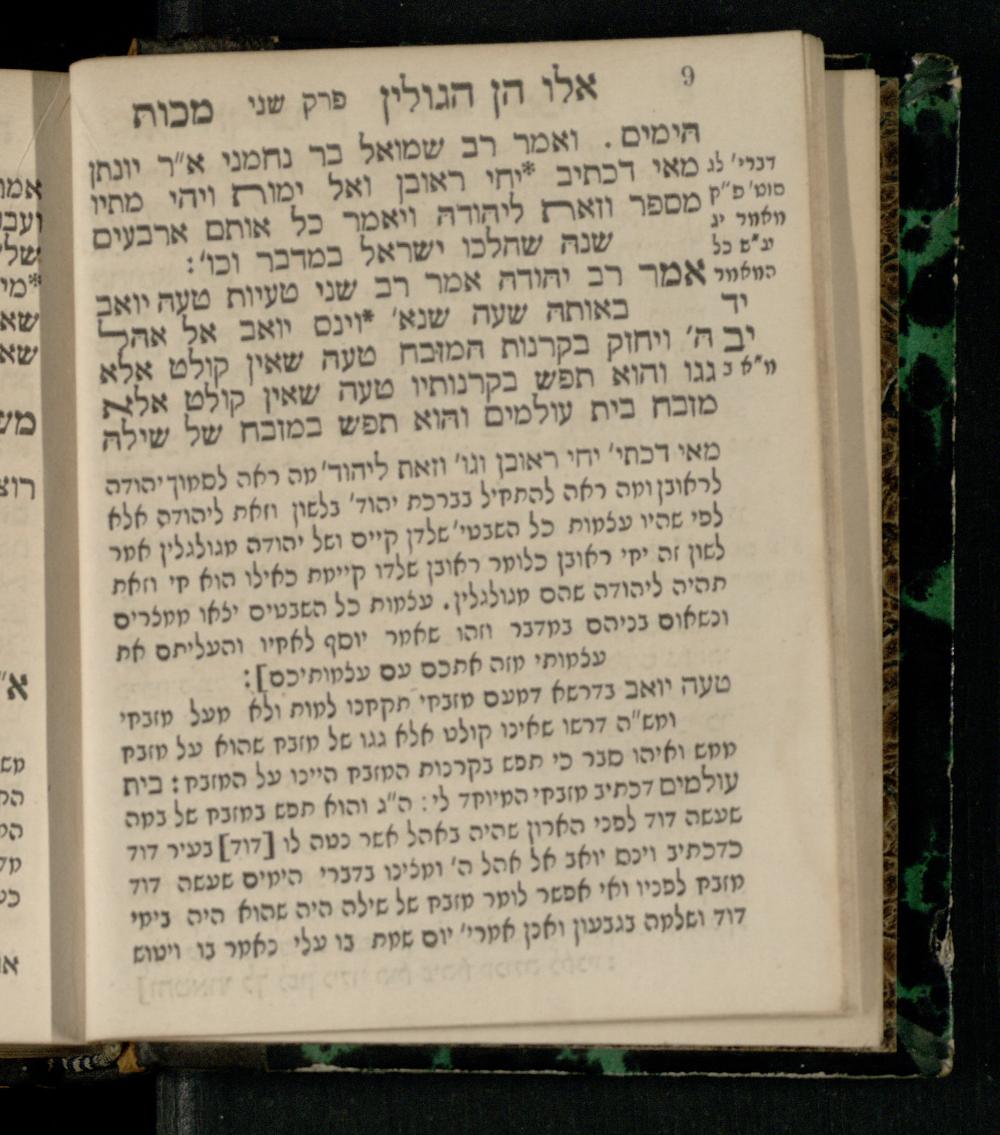 9
אלו הן הגולין פרק שני מכות
הימים. ואמר רב שמואל בר נחמני א״ר יונתן
מאי דכתיב *יחי ראובן ואל ימות ויהי מתיו
מספר וזאת ליהודה ויאמר כל אותם ארבעים
שנה שהלכו ישראל במדבר וכו׳:
אמר רב יהודה אמר רב שני טעיות טעה יואב
באותה שעה שנא׳ *וינס יואב אל אהל
ה׳ ויחזק בקרנות המזבח טעה שאין קולט אלא
גגו והוא תפש בקרנותיו טעה שאין קולט אלא
מזבח בית עולמים והוא תפש במזבח של שילה
דברי׳ לג
סוט׳ פ״ק
מאמר יג
ע״ש כל
המאמר
יד
יב
מ״א ב
מאי דכתי׳ יחי ראובן וגו׳ וזאת ליהוד׳ מה ראה לסמוך יהודה
לראובן ומה ראה להתחיל בברכת יהוד׳ בלשון וזאת ליהודה אלא
לפי שהיו עצמות כל השבטי׳ שלדן קיים ושל יהודה מגולגלין אמר
לשון זה יחי ראובן כלומר ראובן שלדו קיימת כאילו הוא חי וזאת
תהיה ליהודה שהם מגולגלין. עצמות כל השבטים יצאו ממצרים
ונשאום בניהם במדבר וזהו שאמר יוסף לאחיו והעליתם את
עצמותי מזה אתכם עם עצמותיכם]:
טעה יואב בדרשא דמעם מזבחי תקחנו למות ולא מעל מזבחי
ומש״ה דרשו שאינו קולט אלא גגו של מזבח שהוא על מזבח
ממש ואיהו סבר כי תפש בקרנות המזבח היינו על המזבח: בית
עולמים דכתיב מזבחי המיוחד לי: ה״ג והוא תפש במזבח של במה
שעשה דוד לפני הארון שהיה באהל אשר נטה לו [דוד] בעיר דוד
כדכתיב וינס יואב אל אהל ה׳ ומצינו בדברי הימים שעשה דוד
מזבח לפניו ואי אפשר לומר מזבח של שילה היה שהוא היה בימי
דוד ושלמה בגבעון ואכן אמרי׳ יום שמת בו עלי נאמר בו ויטוש